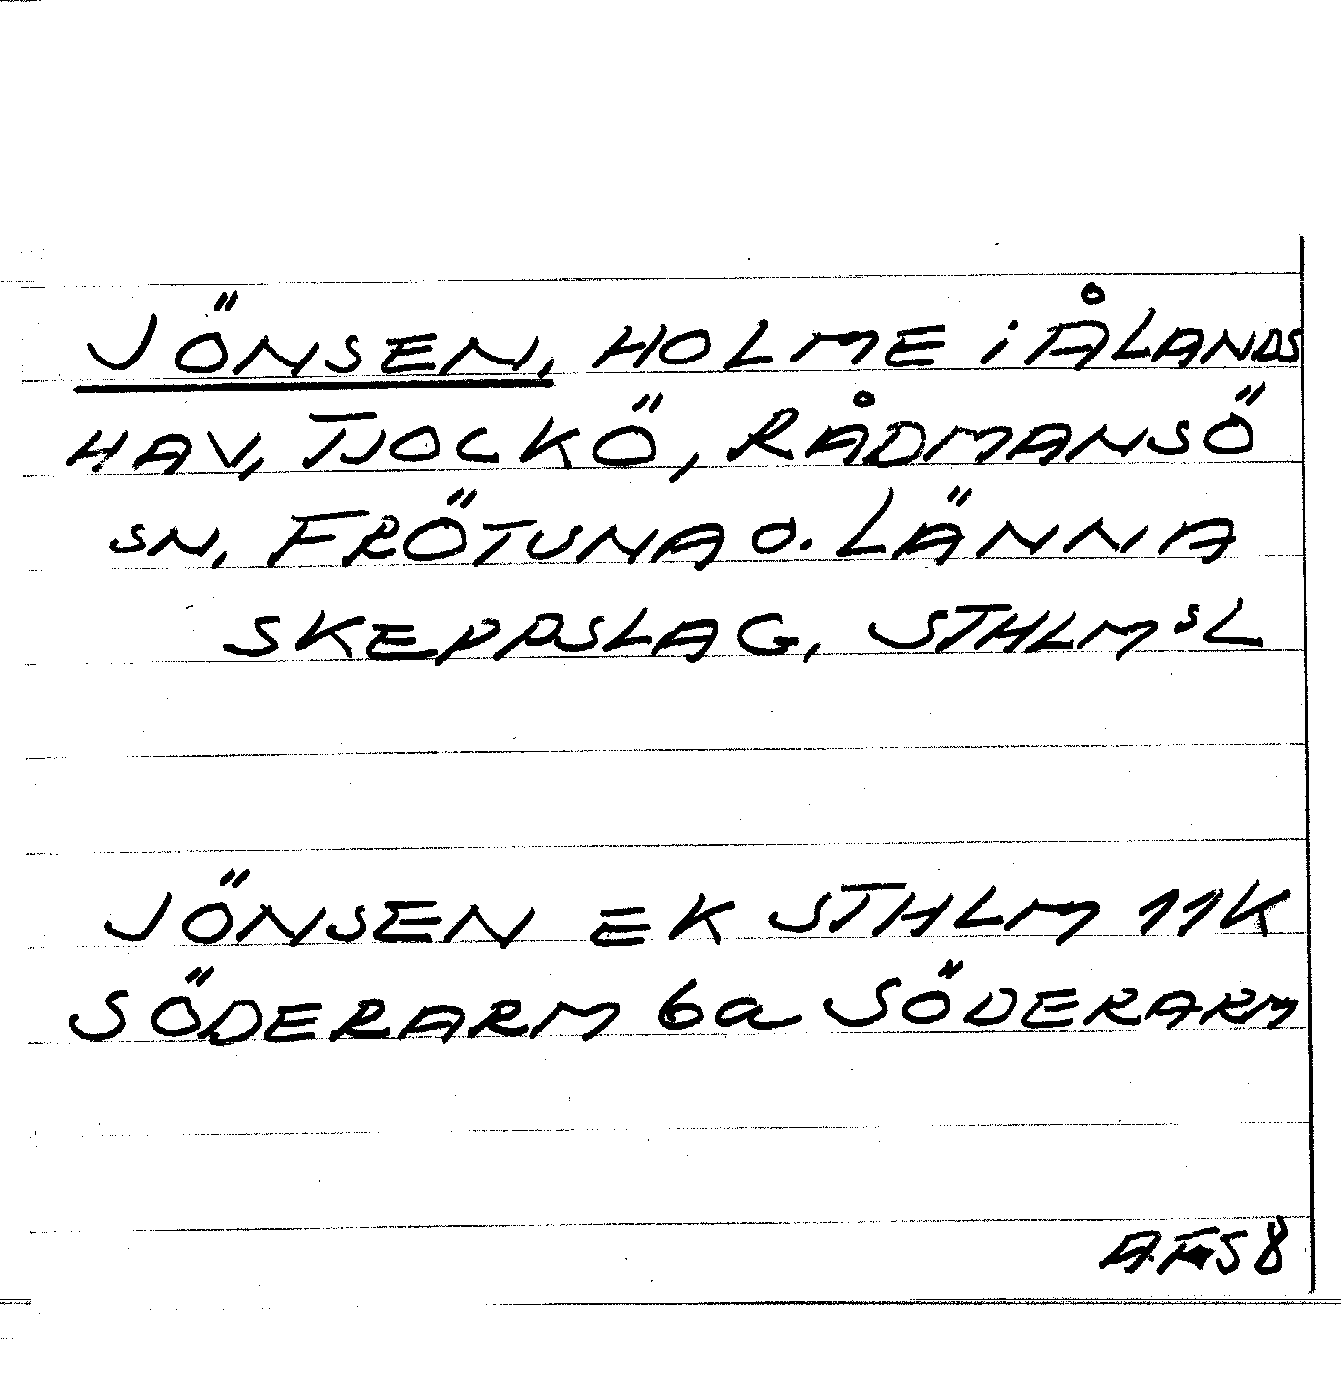 JÖNSEN, HOLME i ÅLANDS
HAV, TJOCKÖ, RÅDMANSÖ
SN, FRÖTUNA O. LÄNNA
SKEPPSLAG, STHLMSL
JÖNSEN EK STHLM 11K
SÖDERARM 6a SÖDERARM